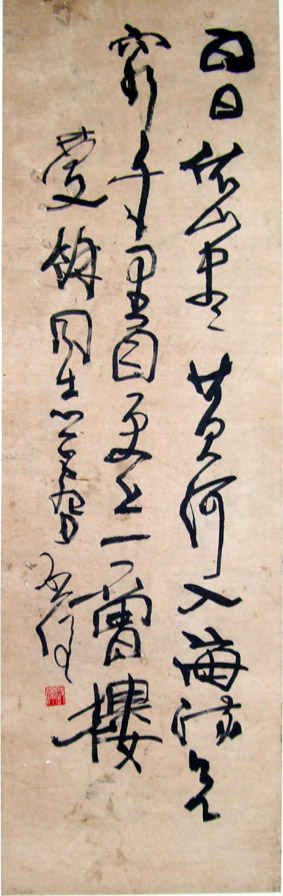 白日依山盡黄河入海流欲
窮千里目更上一層樓
同志